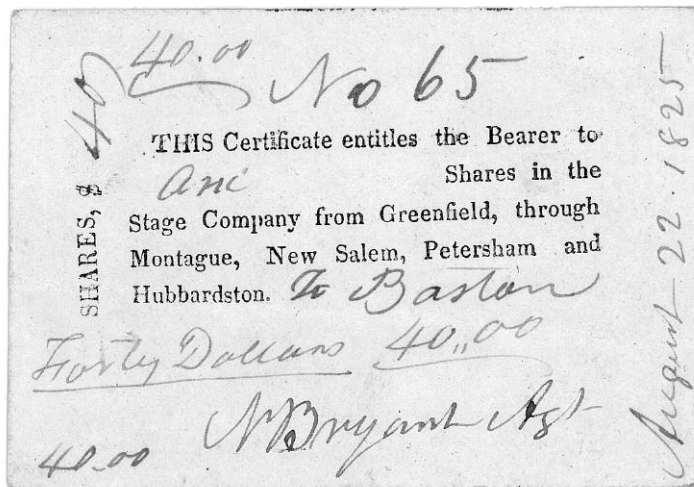 40.00
No 65
THIS Certificate entitles the Bearer to
One Shares in the
Stage Company from Greenfield, through
Montague, New Salem, Petersham and
Hubbardston. To Boston
Forty Dollars 40,,00
N Bryant Agt
40.00
SHARES, $ 40
August 22. 1825